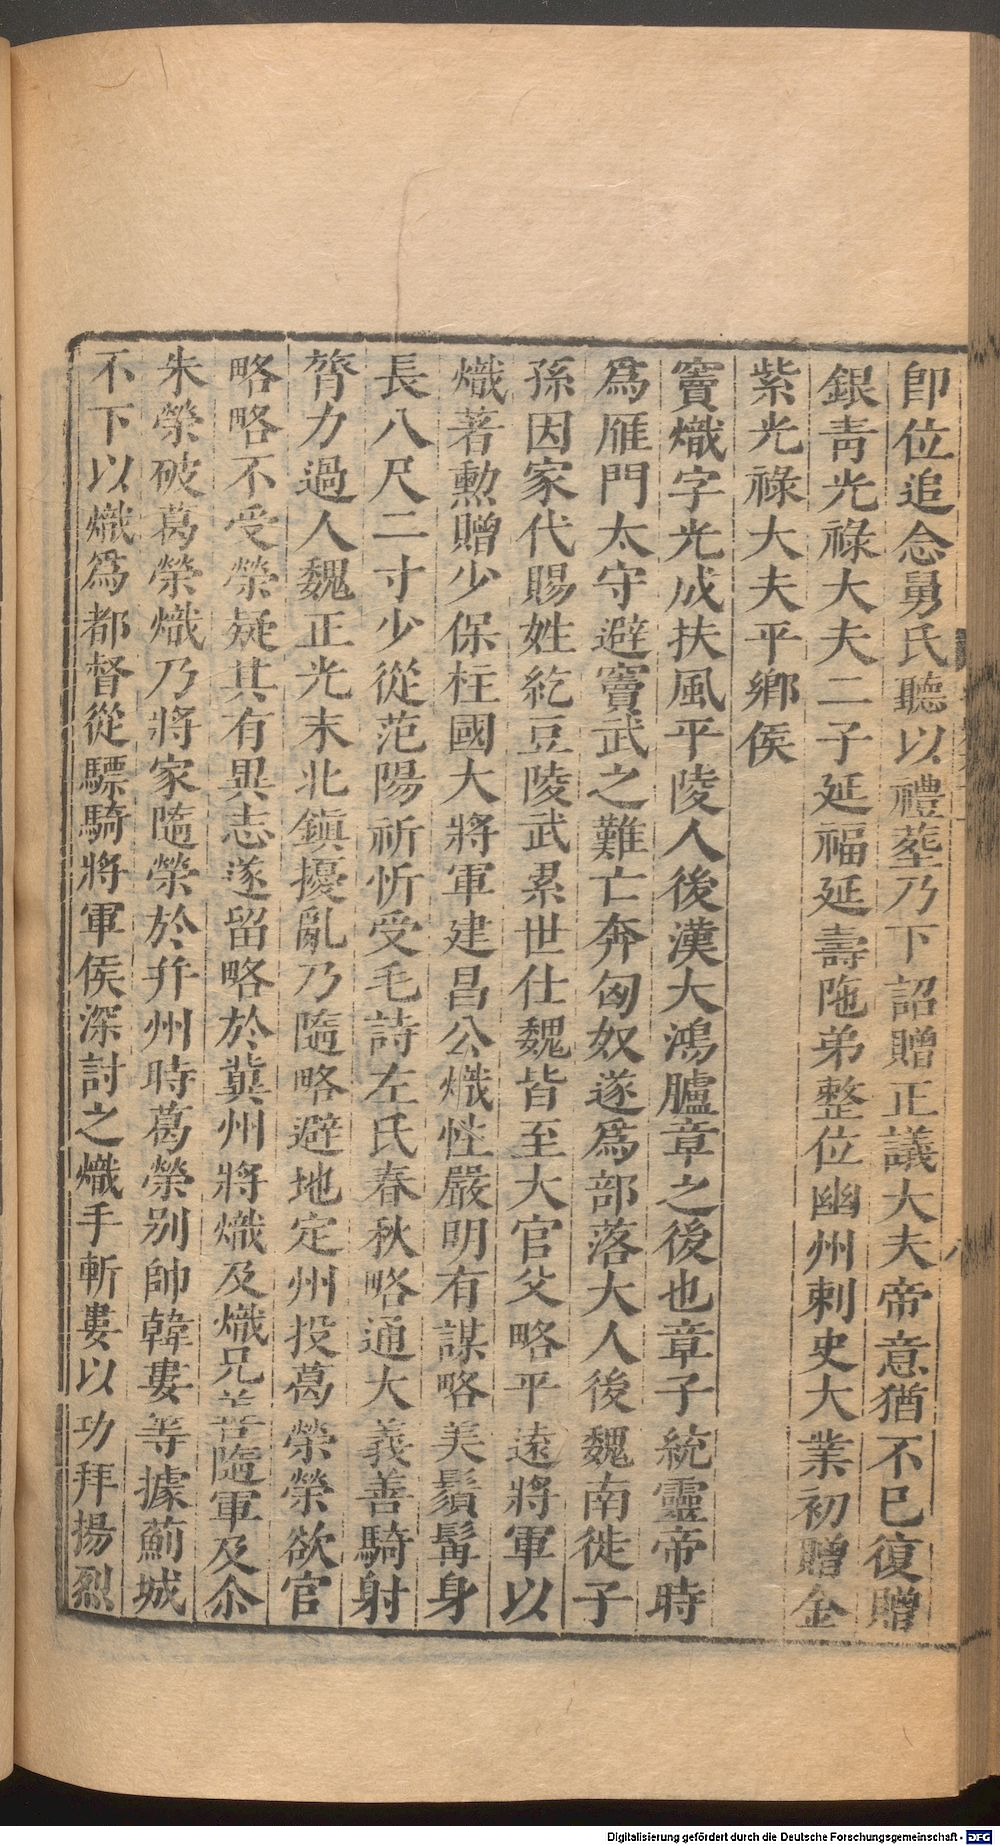 卽位追念舅氏聽以禮塟乃下詔贈正議大夫帝意猶不已復贈
銀靑光祿大夫二子延福延壽陁弟整位幽州刺史大業初贈金
紫光祿大夫平鄉侯
竇熾字光成扶風平陵人後漢大鴻臚章之後也章子統靈帝時
爲雁門太守避竇武之難亡奔匈奴遂爲部落大人後魏南徙子
孫因家代賜姓紇豆陵武累世仕魏皆至大官父略平遠將軍以
熾著勲贈少保柱國大將軍建昌公熾性嚴明有謀略美鬚髯身
長八尺二寸少從范陽祈忻受毛詩左氏春秋略通大義善騎射
膂力過人魏正光末北鎭擾亂乃隨略避地定州投葛榮榮欲官
略略不受榮疑其有異志遂留略於冀州將熾及熾兄善隨軍及尒
朱榮破葛榮熾乃將家隨榮於并州時葛榮別帥韓婁等據薊城
不下以熾爲都督從驃騎將軍侯深討之熾手斬婁以功拜揚烈
Digitalisierung gefördert durch die Deutsche Forschungsgemeinschaft - DFG